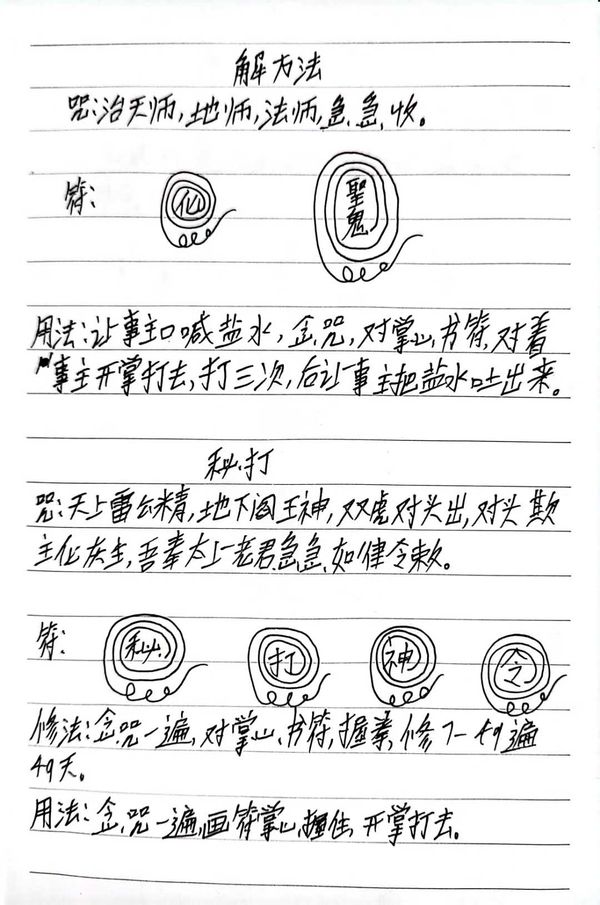 解方法
咒:治天师,地师,法师,急,急,收。
符: 仙 聖鬼
用法:让事主口喊盐水,念咒,对掌心书符,对着
事主开掌打去,打三次,后让事主把盐水吐出来。
秘打
咒:天上雷公精,地下阎王神,双虎对头出,对头欺
主化灰主,吾奉太上老君急急如律令敕。
符: 秘 打 神 令
修法:念咒一遍,对掌心书符,握拳,修7一49遍
49天。
用法:念咒一遍,画符掌心,握住,开掌打去。